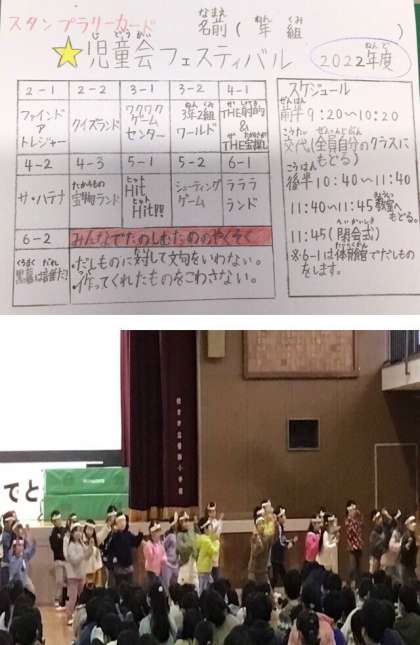 スタンプラリーカード
名前(　年　組　)
なまえ　ねん　くみ
☆児童会フェスティバル　2022年度
じどうかい　ねんど
2-1　2-2　3-1　3-2　4-1
ファインド ア トレジャー
クイズランド
ワクワク ゲーム センター
3年2組 ワールド
THE射的 & THE宝探し
4-2　4-3　5-1　5-2　6-1
ザ・ハテナ
宝物ランド
たからもの
Hit Hit!!
ヒット ヒット
シューティング ゲーム
ラララ ランド
6-2　みんなでたのしむためのやくそく
黒幕は誰だ!
くろまく　だれ
・だしものに対して文句をいわない。
・作ってくれたものをこわさない。
スケジュール
前半9:20〜10:20
ぜんはん
交代(全員自分のクラスに
こうたい　ぜんいんじぶん
もどる)
後半10:40〜11:40
こうはん
11:40〜11:45教室へ
もどる。
11:45(閉会式)
※6-1は体育館でだしもの
をします。
てと